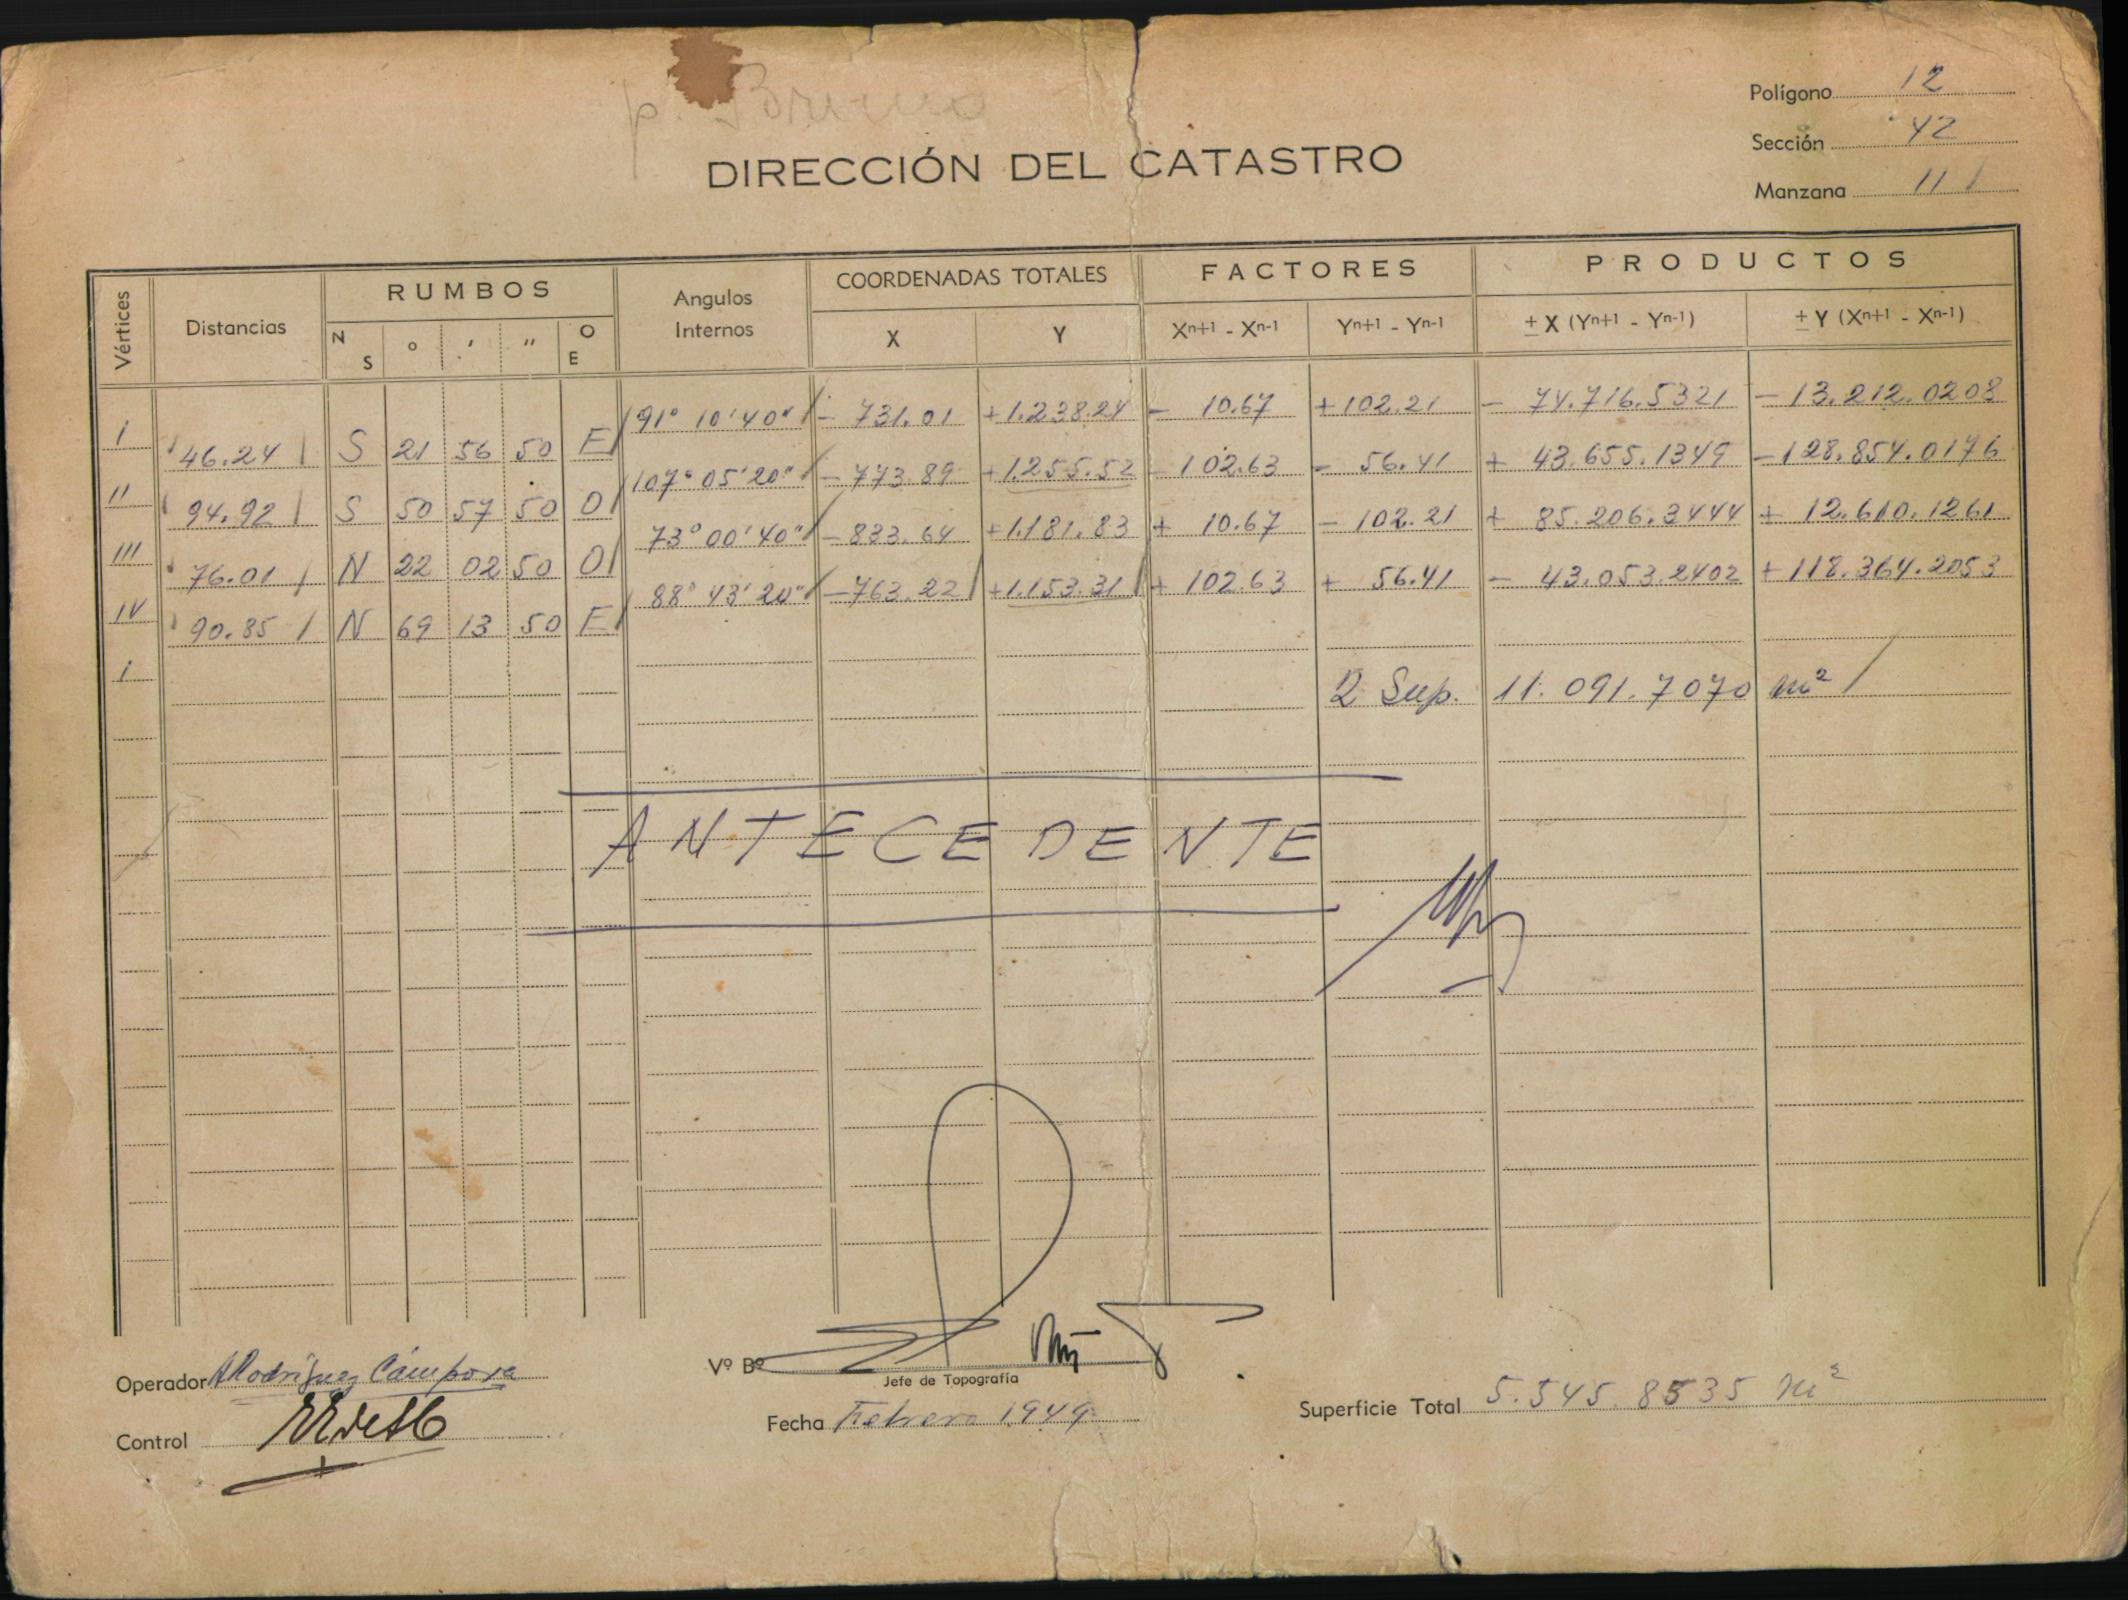 p. Bruno
Polígono 12
Sección 42
Manzana 111
DIRECCIÓN DEL CATASTRO
Vértices Distancias RUMBOS Angulos Internos COORDENADAS TOTALES FACTORES PRODUCTOS
N S ° ' " O E X Y Xn+1 - Xn-1 Yn+1 - Yn-1 ± X (Yn+1 - Yn-1) ± Y (Xn+1 - Xn-1)
I 91° 10' 40" - 731.01 +1.238.24 - 10.67 +102.21 - 74.716.5321 - 13.212.0208
46.24 S 21 56 50 E
II 107° 05' 20" - 773.89 +1.255.52 - 102.63 - 56.41 + 43.655.1349 - 128.854.0176
94.92 S 50 57 50 O
III 73° 00' 40" - 833.64 +1.181.83 + 10.67 - 102.21 + 85.206.3444 + 12.610.1261
76.01 N 22 02 50 O
IV 88° 43' 20" - 763.22 +1.153.31 + 102.63 + 56.41 - 43.053.2402 + 118.364.2053
90.85 N 69 13 50 E
I
2 Sup. 11.091.7070 m²
ANTECEDENTE
Operador ARodríguez Cámpora
Vº Bº
Jefe de Topografía
Control
Fecha Febrero 1949
Superficie Total 5.545.8535 m²